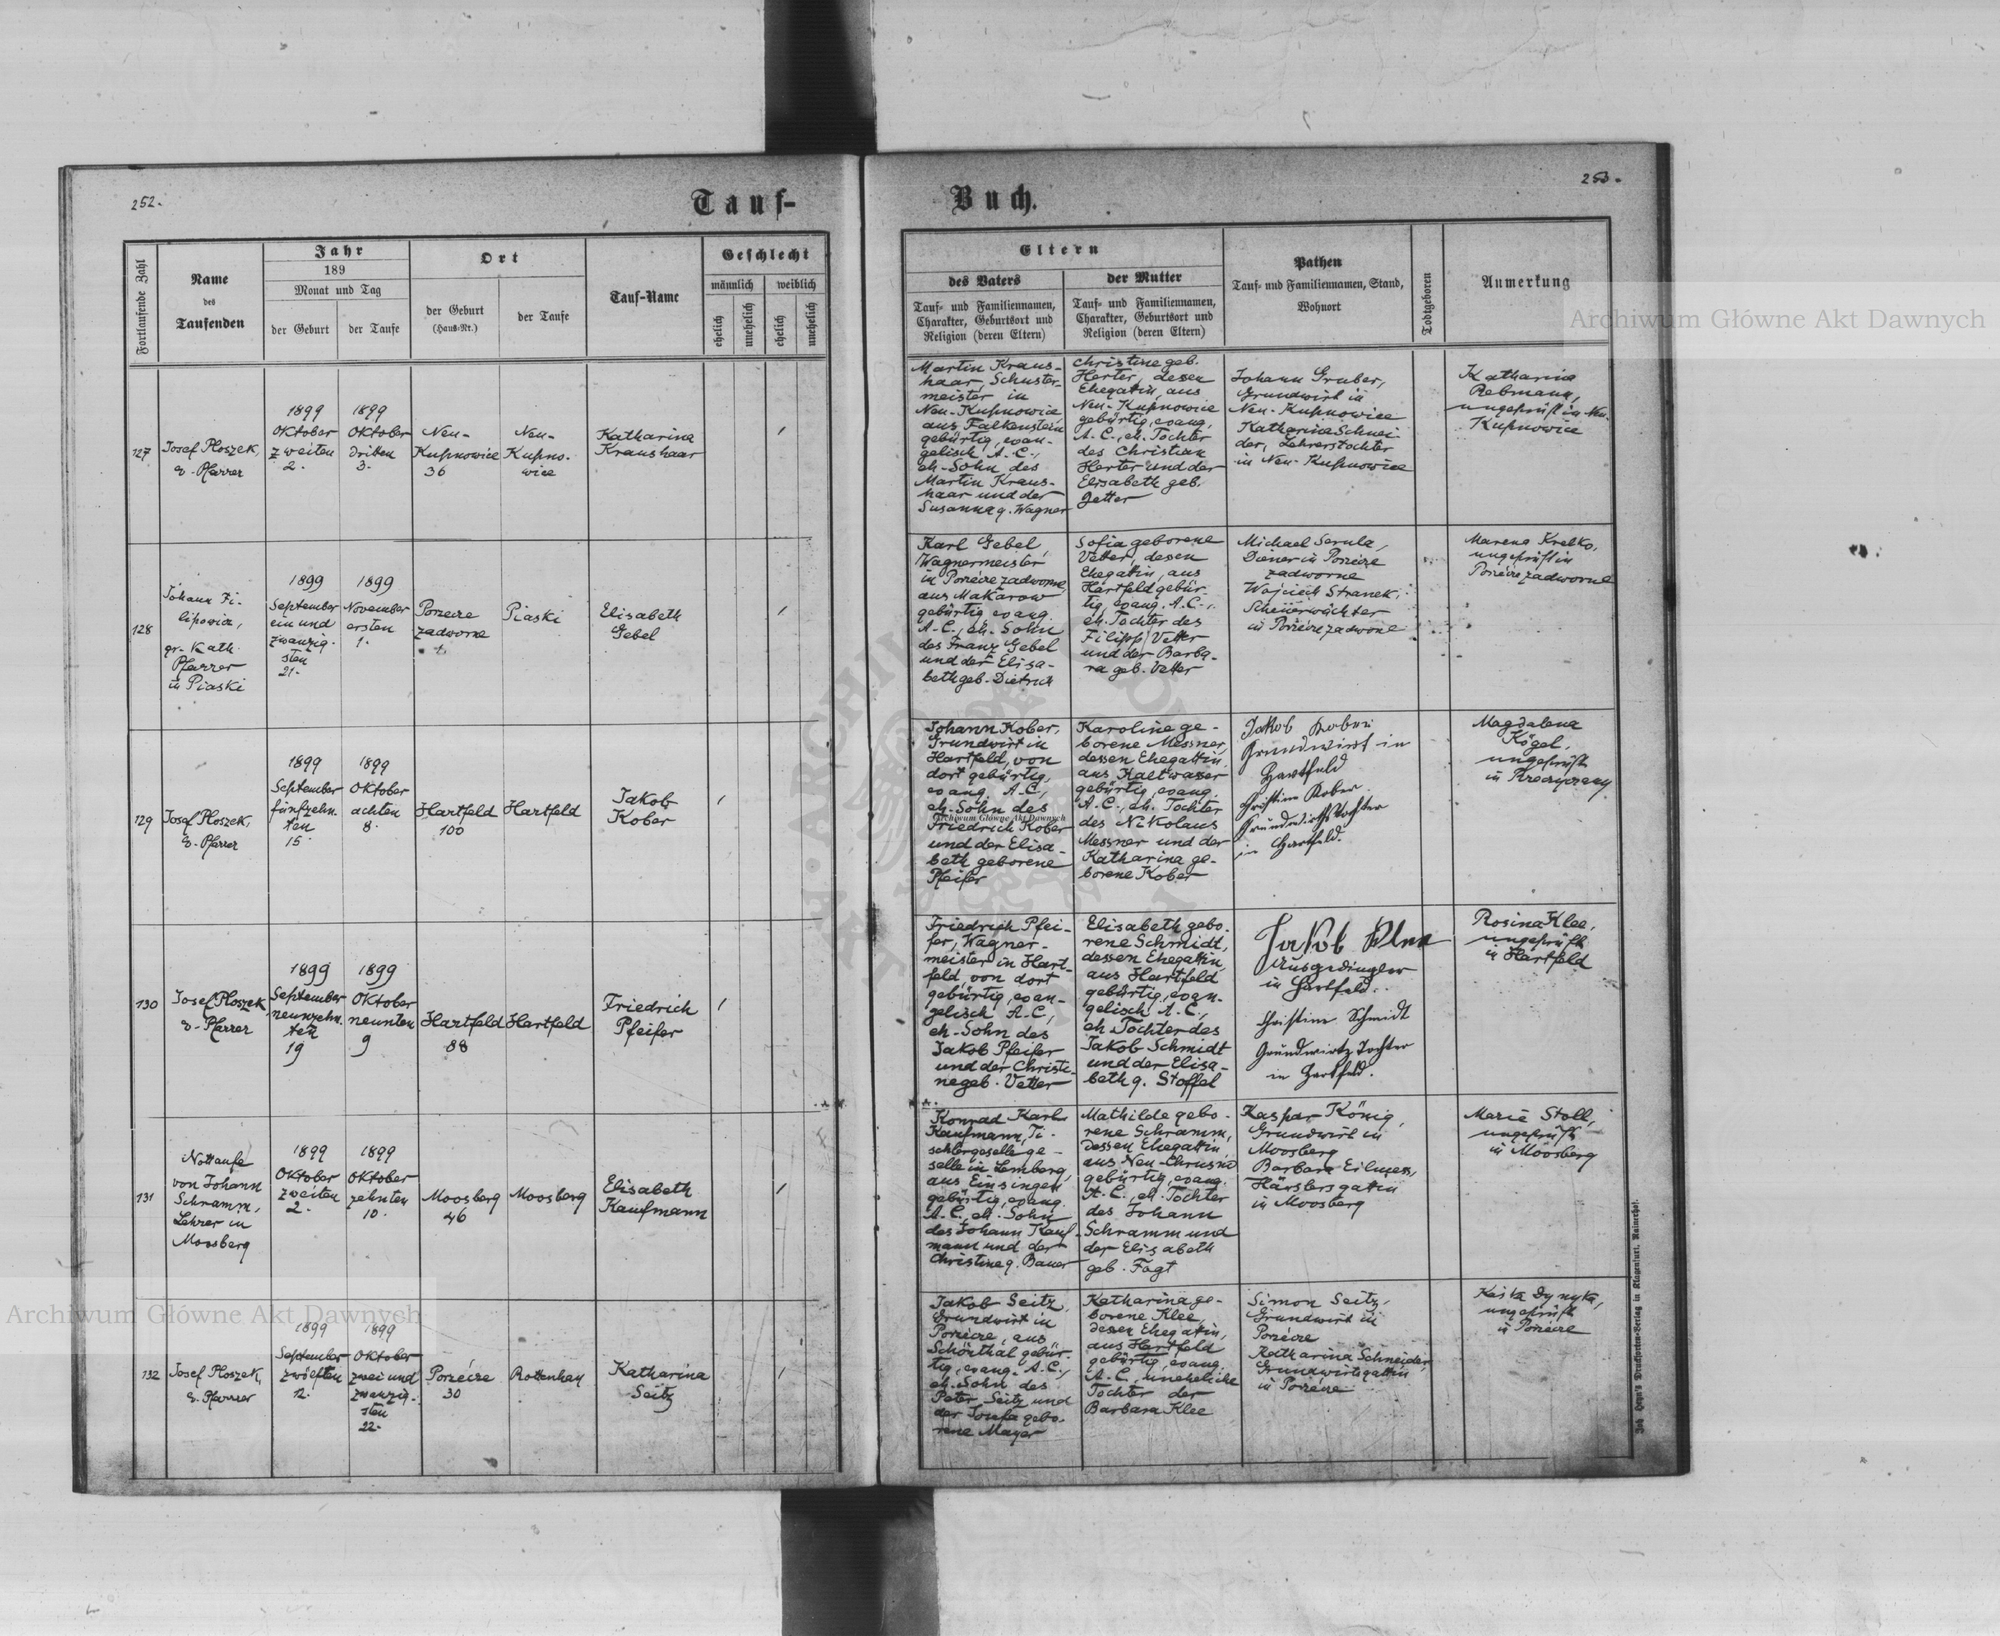 252.
Tauf-
Fortlaufende Zahl
Name
des
Taufenden
Jahr
189
Monat und Tag
der Geburt
der Taufe
Ort
der Geburt
(Haus-Nr.)
der Taufe
Tauf-Name
Geschlecht
männlich
weiblich
ehelich
unehelich
ehelich
unehelich
127
Josef Ploszek,
e. Pfarrer
1899
Oktober
zweiten
2.
1899
Oktober
dritten
3.
Neu-
Kupnowice
36
Neu-
Kupno-
wice
Katharina
Kraushaar
128
Johann Fi-
lipowicz,
gr. Kath.
Pfarrer
in Piaski
1899
September
ein und
zwanzig-
sten
21.
1899
November
ersten
1.
Porzecze
zadworne
Piaski
Elisabeth
Gebel
129
Josef Ploszek,
e. Pfarrer
1899
September
fünfzehn-
ten
15.
1899
Oktober
achten
8.
Hartfeld
100
Hartfeld
Jakob
Kober
130
Josef Ploszek
e. Pfarrer
1899
September
neunzehn-
ten
19
1899
Oktober
neunten
9
Hartfeld
88
Hartfeld
Friedrich
Pfeifer
131
Nottaufe
von Johann
Schramm,
Lehrer in
Moosberg
1899
Oktober
zweiten
2.
1899
Oktober
zehnten
10.
Moosberg
46
Moosberg
Elisabeth
Kaufmann
132
Josef Ploszek,
e. Pfarrer
1899
September
zwölften
12.
1899
Oktober
zwei und
zwanzig-
sten
22.
Porzecze
30
Rottenhan
Katharina
Seitz
253.
Buch.
Eltern
des Vaters
Tauf- und Familiennamen,
Charakter, Geburtsort und
Religion (deren Eltern)
der Mutter
Tauf- und Familiennamen,
Charakter, Geburtsort und
Religion (deren Eltern)
Pathen
Tauf- und Familiennamen, Stand,
Wohnort
Todtgeboren
Anmerkung
Martin Kraus-
haar, Schuster-
meister in
Neu-Kupnowice
aus Falkenstein
gebürtig, evan-
gelisch A.C.,
eh. Sohn des
Martin Kraus-
haar und der
Susanna g. Wagner
Christine geb.
Herter, dessen
Ehegattin, aus
Neu-Kupnowice
gebürtig, evang.
A.C., eh. Tochter
des Christian
Herter und der
Elisabeth geb.
Jetter
Johann Gruber,
Grundwirt in
Neu-Kupnowice
Katharina Schnei-
der, Lehrerstochter
in Neu-Kupnowice
Katharina
Rebmann,
ungeprüft in Neu-
Kupnowice
Karl Gebel,
Wagnermeister
in Porzecze zadworne,
aus Makarow
gebürtig evang.
A.C., eh. Sohn
des Franz Gebel
und der Elisa-
beth geb. Dietrich
Sofia geborene
Vetter, dessen
Ehegattin, aus
Hartfeld gebür-
tig, evang. A.C.,
eh. Tochter des
Filipp Vetter
und der Barba-
ra geb. Vetter
Michael Serula,
Diener in Porzecze
zadworne
Wojciech Stranek,
Scheuerwächter
in Porzecze zadworne
Marena Krelko,
ungeprüft in
Porzecze zadworne
Johann Kober,
Grundwirt in
Hartfeld, von
dort gebürtig,
evang. A.C.,
eh. Sohn des
Friedrich Kober
und der Elisa-
beth geborene
Pfeifer
Karoline ge-
borene Messner
dessen Ehegattin,
aus Kaltwasser
gebürtig, evang.
A.C., eh. Tochter
des Nikolaus
Messner und der
Katharina ge-
borene Kober
Jakob Kober
Grundwirt in
Hartfeld
Christine Kober
Grundwirthstochter
in Hartfeld.
Magdalena
Kögel,
ungeprüft
in
Friedrich Pfei-
fer, Wagner-
meister in Hart-
feld, von dort
gebürtig, evan-
gelisch A.C.,
eh. Sohn des
Jakob Pfeifer
und der Christi-
ne geb. Vetter
Elisabeth gebo-
rene Schmidt,
dessen Ehegattin,
aus Hartfeld
gebürtig, evan-
gelisch A.C.,
eh. Tochter des
Jakob Schmidt
und der Elisa-
beth g. Stoffel
Jakob Klee
Ausgedingler
in Hartfeld.
Christine Schmidt
Grundwirts Tochter
in Hartfeld.
Rosina Klee,
ungeprüft
in Hartfeld
Konrad Karl
Kaufmann, Ti-
schlergeselle ge-
selle in Lemberg,
aus Einsingen
gebürtig, evang.
A.C., eh. Sohn
des Johann Kauf-
mann und der
Christine g. Bauer
Mathilde gebo-
rene Schramm,
dessen Ehegattin,
aus Neu-Chrusno
gebürtig, evang.
A.C., eh. Tochter
des Johann
Schramm und
der Elisabeth
geb. Fagt
Kaspar König,
Grundwirt in
Moosberg
Barbara Eilmess,
Härslersgattin
in Moosberg
Marie Stoll,
ungeprüft
in Moosberg
Jakob Seitz,
Grundwirt in
Porzecze, aus
Schönthal gebür-
tig, evang. A.C.,
eh. Sohn des
Peter Seitz und
der Josefa gebo-
rene Mayer
Katharina ge-
borene Klee,
dessen Ehegattin,
aus Hartfeld
gebürtig, evang.
A.C., uneheliche
Tochter der
Barbara Klee
Simon Seitz,
Grundwirt in
Porzecze
Katharina Schneider,
Grundwirtsgattin
in Porzecze
Kaśka Dynyka,
ungeprüft
in Porzecze
Joh. Heyn's Drucksorten-Verlag in Klagenfurt, Rainerhof.
Archiwum Główne Akt Dawnych
Archiwum Główne Akt Dawnych
Archiwum Główne Akt Dawnych